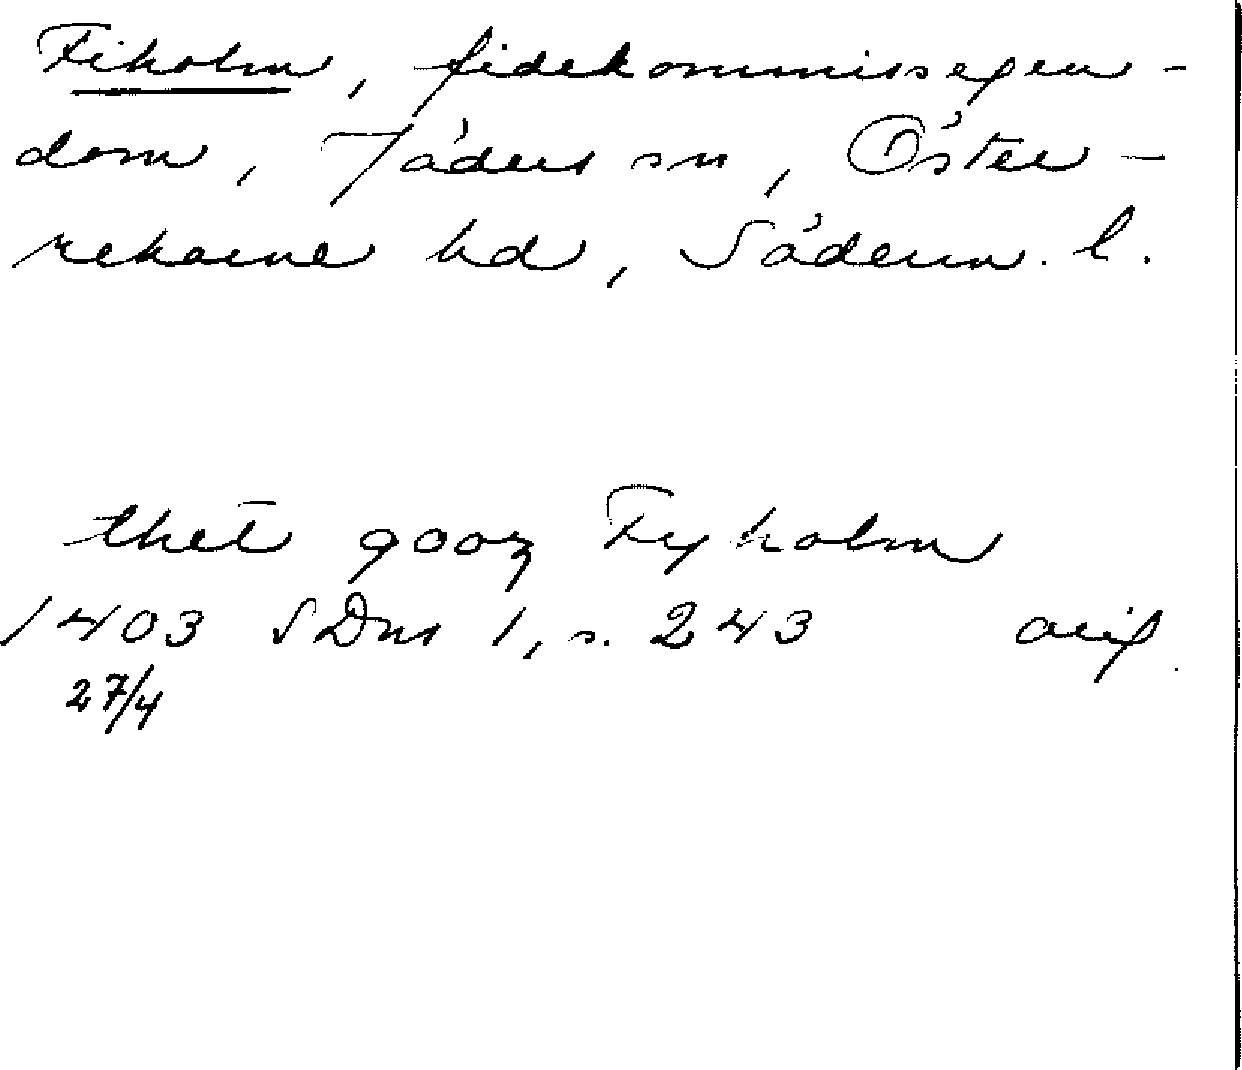 Fiholm, fideikommissegen-
dom, Jäders sn, Öster-
rekarne hd, Söderm. l.
thet gooz Fyholm
1403 SDns 1, s. 243 orig
27/4